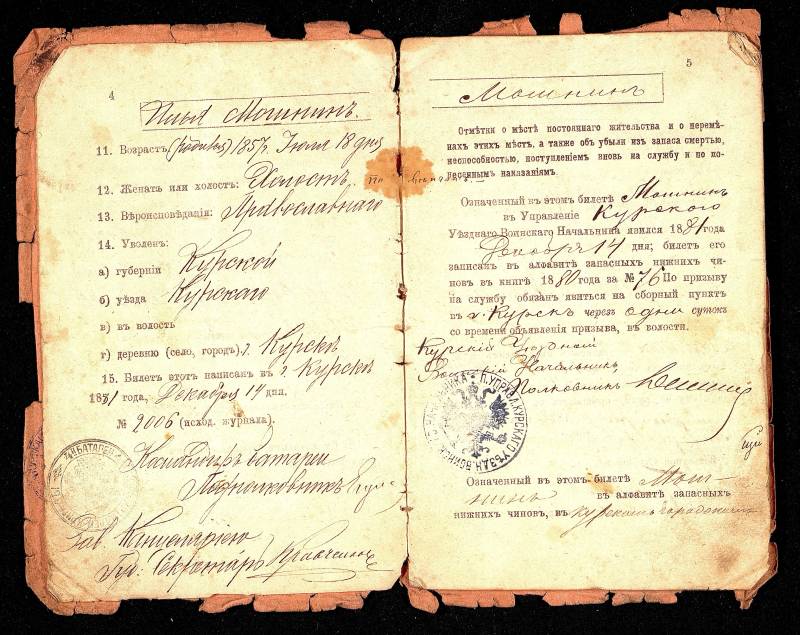 4
Илья Мошнинъ.
11. Возрастъ (родился) 1857 г. Іюля 18 дня
12. Женатъ или холостъ: Холостъ.
13. Вѣроисповѣданія: Православнаго
14. Уволенъ:
а) губерніи Курской
б) уѣзда Курскаго
в) въ волость
г) деревню (село, городъ) г. Курскъ
15. Билетъ этотъ написанъ въ г. Курскѣ
1881 года, Декабря 14 дня.
№ 2006 (исход. журнала).
Командиръ батареи
Подполковникъ
Зав. Канцеляріею
Губ. Секретарь
5
Мошнинъ
Отмѣтки о мѣстѣ постояннаго жительства и о перемѣ-
нахъ этихъ мѣстъ, а также объ убыли изъ запаса смертью,
неспособностью, поступленіемъ вновь на службу и по по-
несеннымъ наказаніямъ.
Означенный въ этомъ билетѣ Мошнинъ
въ Управленіе Курскаго
Уѣзднаго Воинскаго Начальника явился 1881 года
Декабря 14 дня; билетъ его
записанъ въ алфавитѣ запасныхъ нижнихъ чи-
новъ въ книгѣ 1880 года за № 76 По призыву
на службу обязанъ явиться на сборный пунктъ
въ г. Курскъ черезъ одни сутокъ
со времени объявленія призыва, въ волости.
Курскій Уѣздный
Воинскій Начальникъ,
Полковникъ
П. УПРАВ. КУРСКАГО УѢЗДН. ВОИНСКАГО НАЧАЛЬНИКА
Означенный въ этомъ билетѣ Мош-
нинъ въ алфавитѣ запасныхъ
нижнихъ чиновъ, въ курскомъ городскомъ